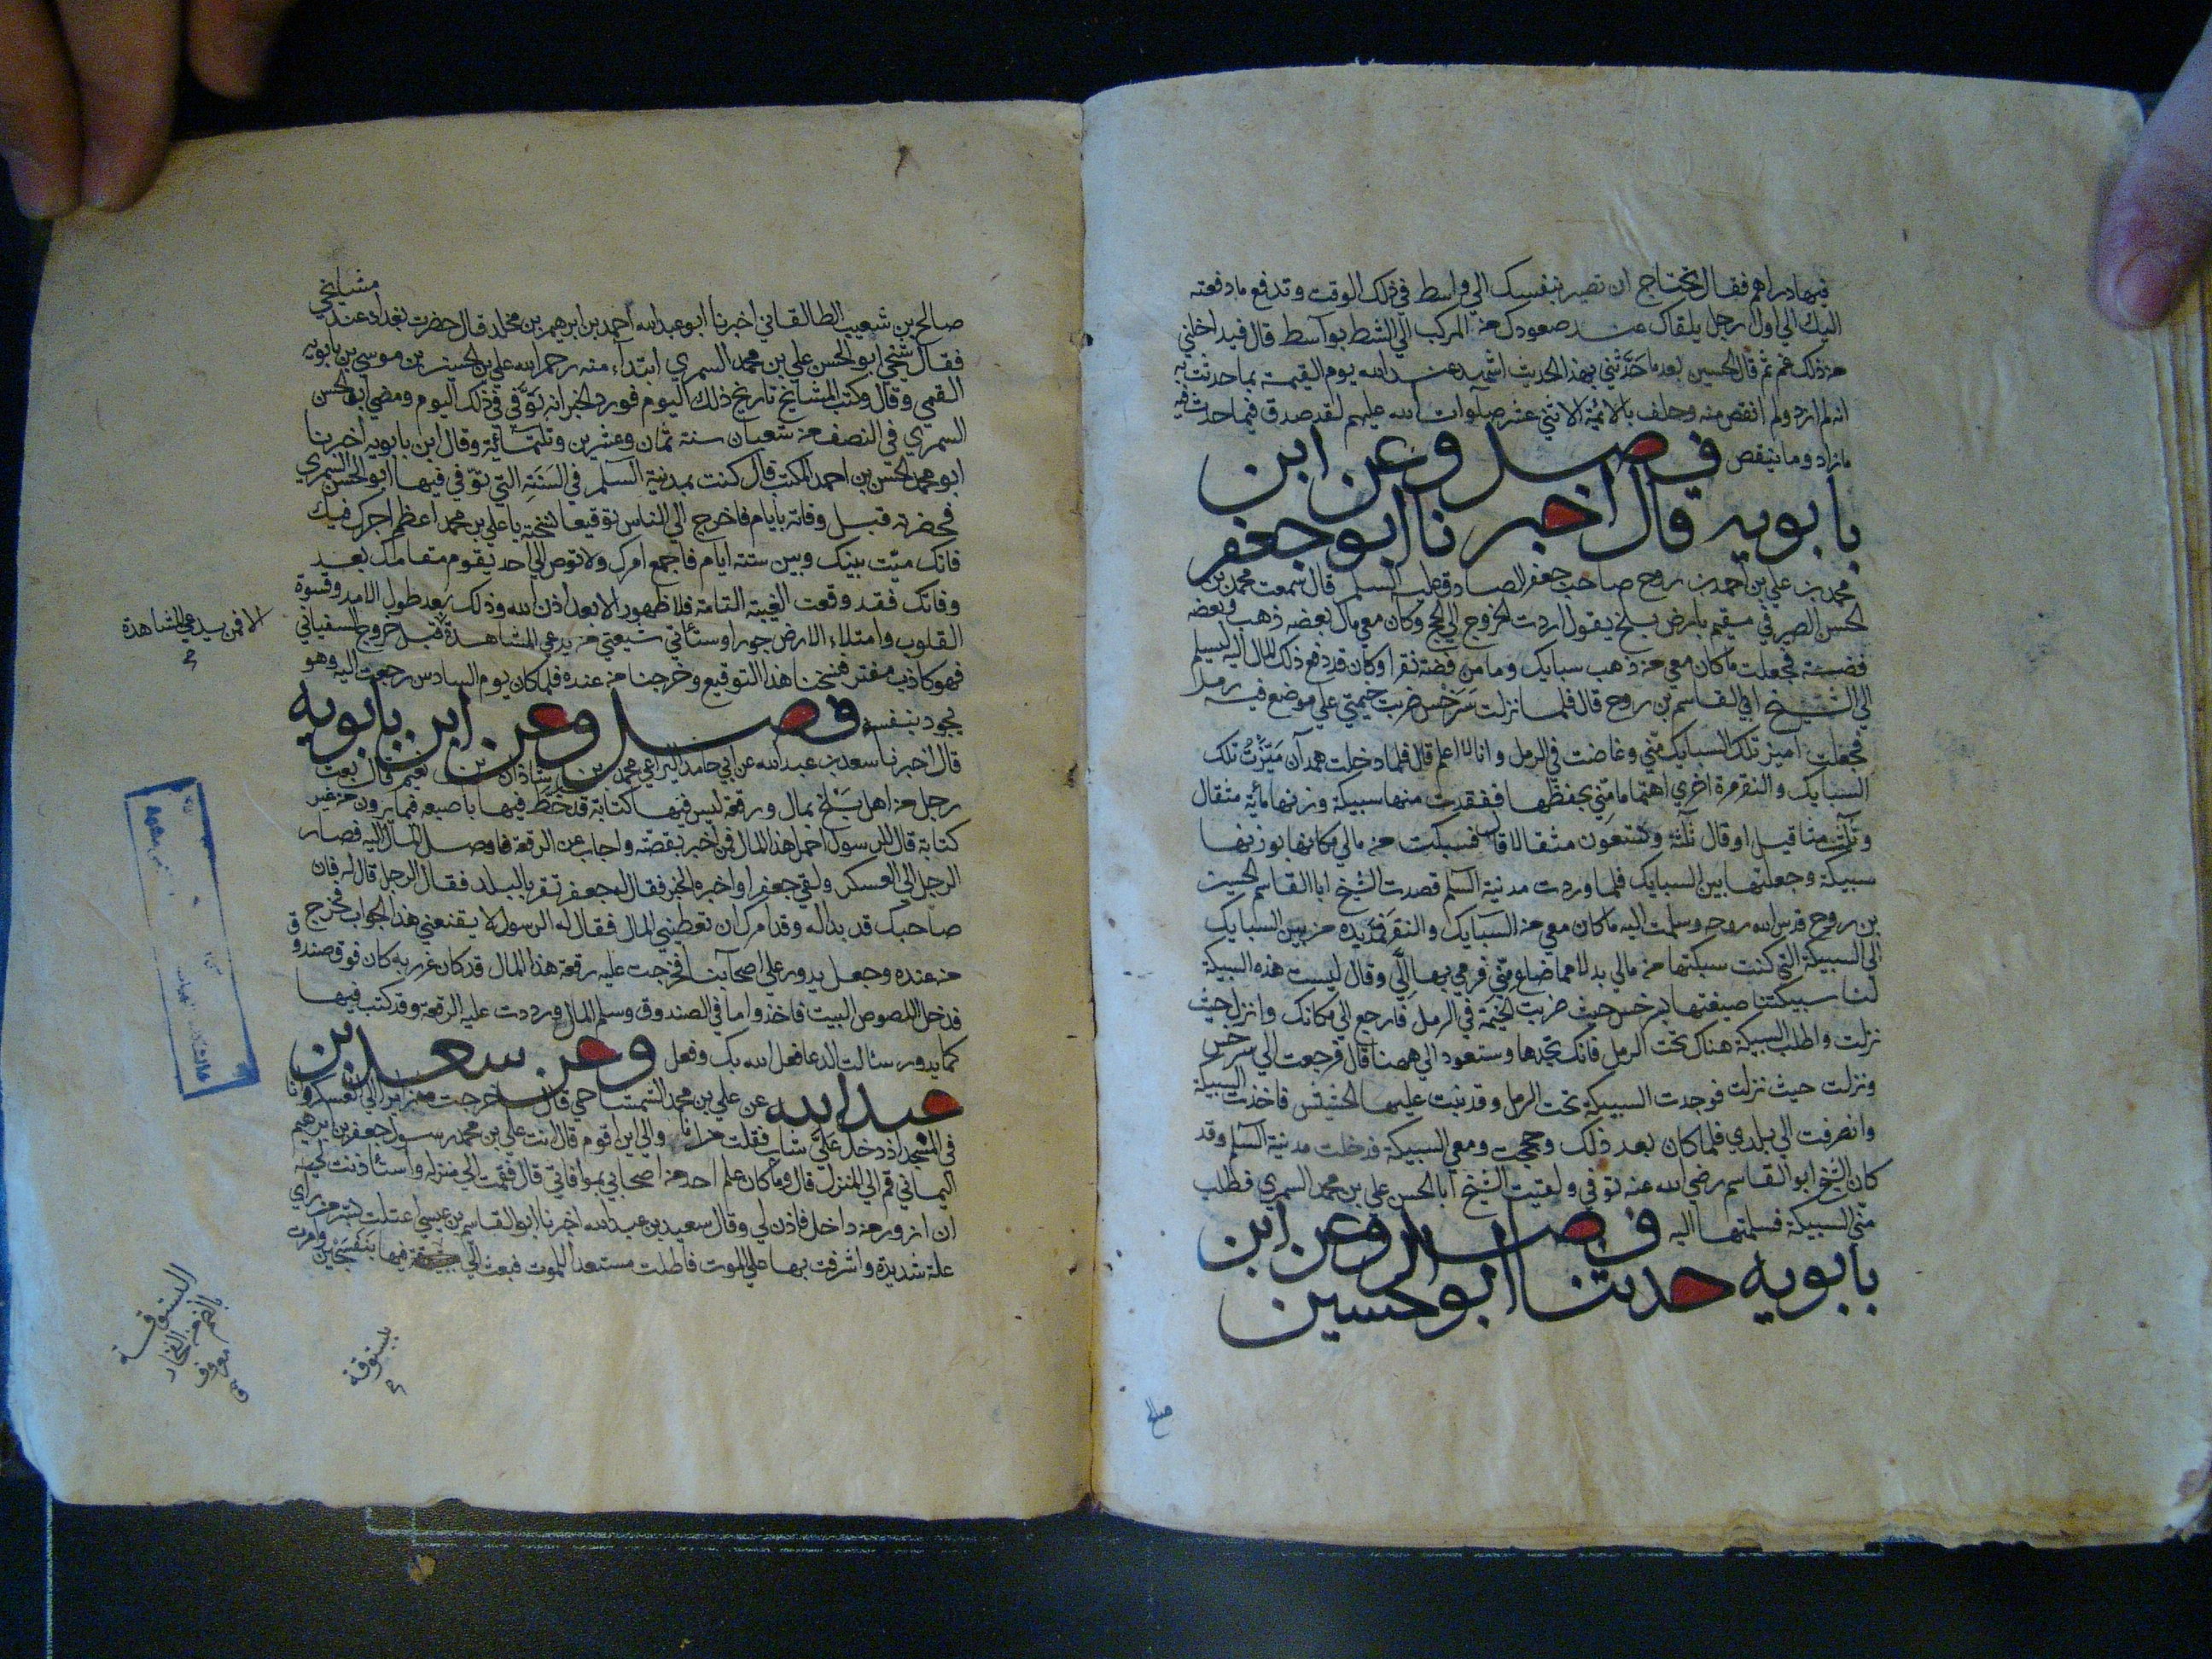 فيها دراهم فقال تحتاج ان تصير بنفسك الي واسط في ذلك الوقت وتدفع ما دفعته
اليك الي اول رجل يلقاك عند صعودك من المركب الي الشط بواسط قال فيداخلني
من ذلك غم ثم قال الحسين بعد ما حدثني بهذا الحديث اشهد عند الله يوم القيمة بما حدثت به
انه لم ازد ولم انقص منه وحلف بالائمة الاثني عشر صلوات الله عليهم لقد صدق فيما حدث به
ما زاد وما ينقص فصل وعن ابن
بابويه قال اخبرنا ابو جعفر
محمد بن علي بن احمد بن روح صاحب جعفر الصادق عليه السلم قال سمعت محمد بن
الحسن الصيرفي مقيم بارض بلخ يقول اردت الخروج الي الحج وكان معي مال بعضه ذهب وبعضه
فضة فجعلت ما كان معي من ذهب سبايك وما من فضة نقرا وكان قد دفع ذلك المال اليه ليسلم
الي الشيخ ابي القاسم بن روح قال فلما نزلت سرخس ضربت خيمتي علي موضع فيه رمل
فجعلت اميز تلك السبايك مني وغاضت في الرمل وانا لا اعلم قال فلما دخلت همدان ميزت تلك
السبايك والنقر مرة اخري اهتماما مني بحفظها ففقدت منها سبيكة وزنها مائة مثقال
وثلث مثاقيل او قال ثلثة وتسعون مثقالا قال فسبكت من مالي مكانها بوزنها
سبيكة وجعلتها بين السبايك فلما وردت مدينة السلم قصدت الشيخ ابا القاسم الحسين
بن روح قدس الله روحه وسلمت اليه ما كان معي من السبايك والنقر فمد يده من بين السبايك
الي السبيكة التي كنت سبكتها من مالي بدلا مما ضاع مني فرمي بها الي وقال ليست هذه السبيكة
لنا سبيكتنا ضيعتها بسرخس حيث ضربت الخيمة في الرمل فارجع الي مكانك وانزل حيث
نزلت واطلب السبيكة هناك تحت الرمل فانك تجدها وستعود الي ههنا قال فرجعت الي سرخس
ونزلت حيث نزلت فوجدت السبيكة تحت الرمل وقد نبت عليها الحشيش فاخذت السبيكة
وانصرفت الي بلدي فلما كان بعد ذلك وحججت ومعي السبيكة فدخلت مدينة السلم وقد
كان الشيخ ابو القاسم رضي الله عنه توفي ولقيت الشيخ ابا الحسن علي بن محمد السمري فطلب
مني السبيكة فسلمتها اليه فصل وعن ابن
بابويه حدثنا ابو حسين
صالح
مشايخي
صالح بن شعيب الطالقاني اخبرنا ابو عبد الله احمد بن ابرهيم بن مخلد قال حضرت بغداد عند
فقال شيخي ابو الحسن علي بن محمد السمري ابتداء منه رحم الله علي بن الحسين بن موسي بن بابويه
القمي وقال وكتب المشايخ تاريخ ذلك اليوم فورد الخبر انه توفي في ذلك اليوم ومضي ابو الحسن
السمري في النصف من شعبان سنة ثمان وعشرين وثلثمائة وقال ابن بابويه اخبرنا
ابو محمد الحسن بن احمد المكتب قال كنت بمدينة السلم في السنة التي توفي فيها ابو الحسن السمري
فحضرته قبل وفاته بايام فاخرج الي الناس توقيعا نسخته يا علي بن محمد اعظم اجرك فيك
فانك ميت بينك وبين ستة ايام فاجمع امرك ولا توص الي احد يقوم مقامك بعد
وفاتك فقد وقعت الغيبة التامة فلا ظهور الا بعد اذن الله وذلك بعد طول الامد وقسوة
القلوب وامتلاء الارض جورا وستأتي شيعتي من يدعي المشاهدة قبل خروج السفياني
الا فمن سيدعي المشاهدة
فهو كاذب مفتر فنسخنا هذا التوقيع وخرجنا من عنده فلما كان يوم السادس رجعت اليه وهو
يجود بنفسه فصل وعن ابن بابويه
قال اخبرنا سعد بن عبد الله عن ابي حامد المراعي محمد بن شاذان بن نعيم قال بعث
رجل من اهل بلخ بمال ورقعة ليس فيها كتابة قد خط فيها باصبعه فما يرون من غير
كتابة قال للرسول احمل هذا المال فمن اخبر بقصته واجاب عن الرقعة فاوصل المال اليه فصار
الرجل الي العسكر ولقي جعفرا واخبره الخبر فقال له جعفر تقر بالبلد فقال الرجل قال له فان
صاحبك قد بدا له وقد امرك ان تعطيني المال فقال له الرسول لا يقنعني هذا الجواب فخرج
من عنده وجعل يدور علي اصحابنا فخرجت عليه رقعة هذا المال قد كان غرر به كان فوق صندوق
فدخل اللصوص البيت فاخذوا ما في الصندوق وسلم المال وردت عليه الرقعة وقد كتب فيها
كما يدور سئالت الدعا فعل الله بك وفعل وعن سعد بن
عبد الله عن علي بن محمد الشمشاحي قال خرجت الي العسكر وانا
في المسجد اذ دخل علي شاب فقلت والي ابن اقوم قال انت علي بن محمد رسول جعفر بن ابرهيم
اليماني قم الي المنزل قال وما كان علم احد من اصحابي بموافاتي قال فقمت الي منزله واستأذنت
ان ازور من داخل فاذن لي وقال سعيد بن عبد الله اخبرنا ابو القاسم بن عيسي اعتللت بسر من راي
علة شديدة واشرفت بها علي الموت فاطلت مستعدا للموت فبعث الي فيها بنفسجين وامرت
ببستوقة
البستوقة
بالضم من الفخار
معروف
ق